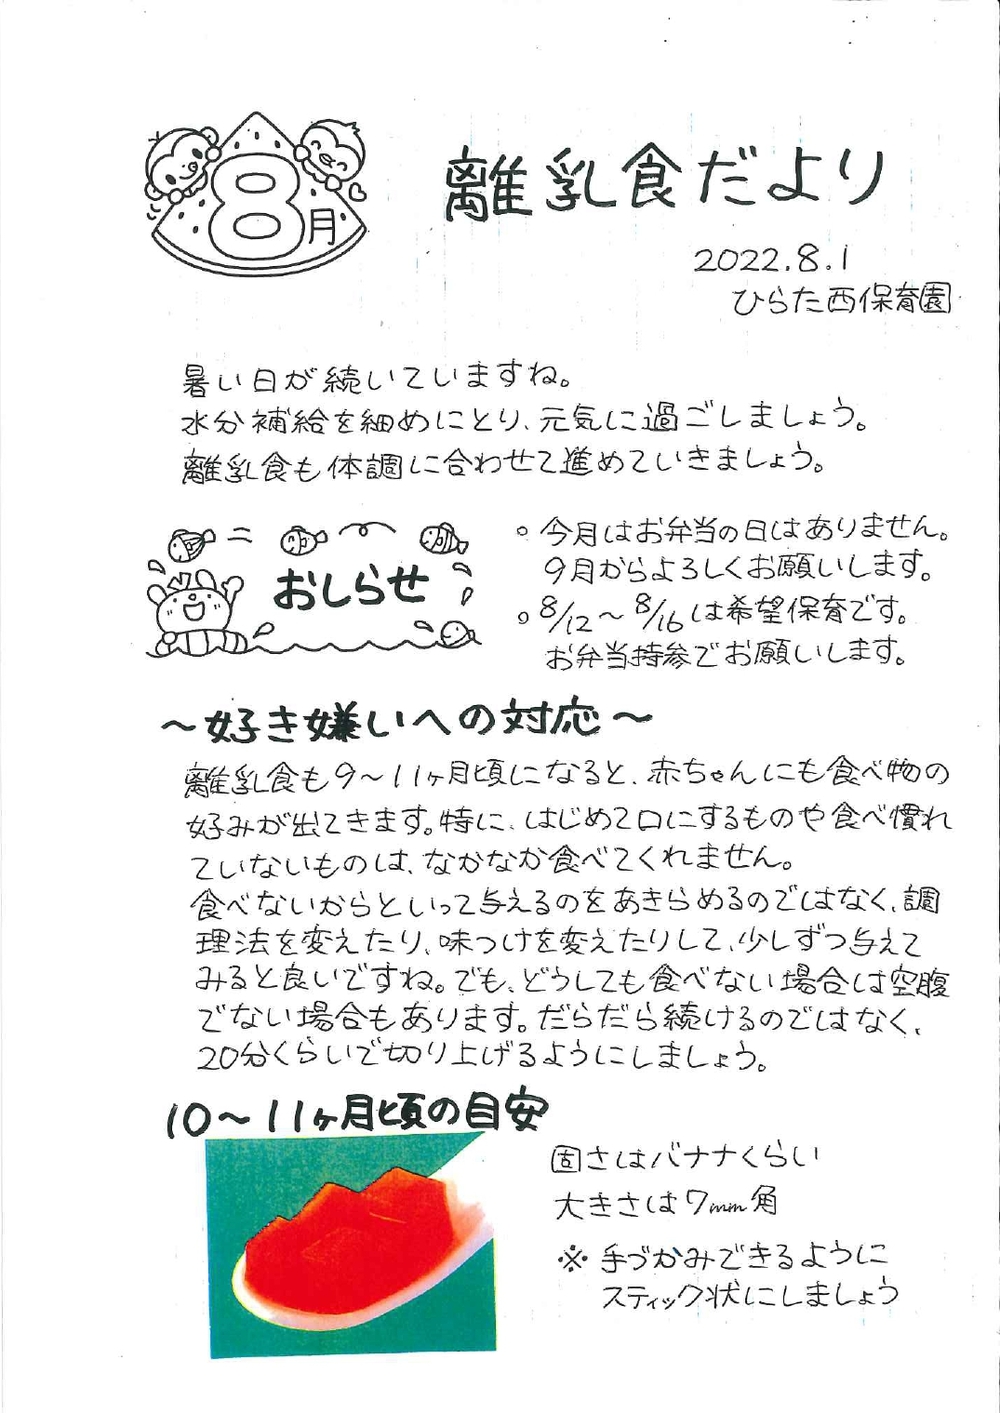 8月
離乳食だより
2022.8.1
ひらた西保育園
暑い日が続いていますね。
水分補給を細めにとり、元気に過ごしましょう。
離乳食も体調に合わせて進めていきましょう。
おしらせ
○ 今月はお弁当の日はありません。
9月からよろしくお願いします。
○ 8/12〜8/16は希望保育です。
お弁当持参でお願いします。
〜好き嫌いへの対応〜
離乳食も9〜11ヶ月頃になると、赤ちゃんにも食べ物の
好みが出てきます。特に、はじめて口にするものや食べ慣れ
ていないものは、なかなか食べてくれません。
食べないからといって与えるのをあきらめるのではなく、調
理法を変えたり、味つけを変えたりして、少しずつ与えて
みると良いですね。でも、どうしても食べない場合は空腹
でない場合もあります。だらだら続けるのではなく、
20分くらいで切り上げるようにしましょう。
10〜11ヶ月頃の目安
固さはバナナくらい
大きさは7mm角
※ 手づかみできるように
スティック状にしましょう